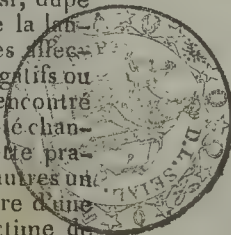 si, dupe
e la lan-
es affec-
gatifs ou
encontré
té chan-
tte pra-
autres un
re d'une
ctime de